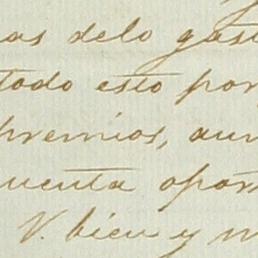 as delo gast
todo esto por
premios, aun
uenta opor
V. bien y m